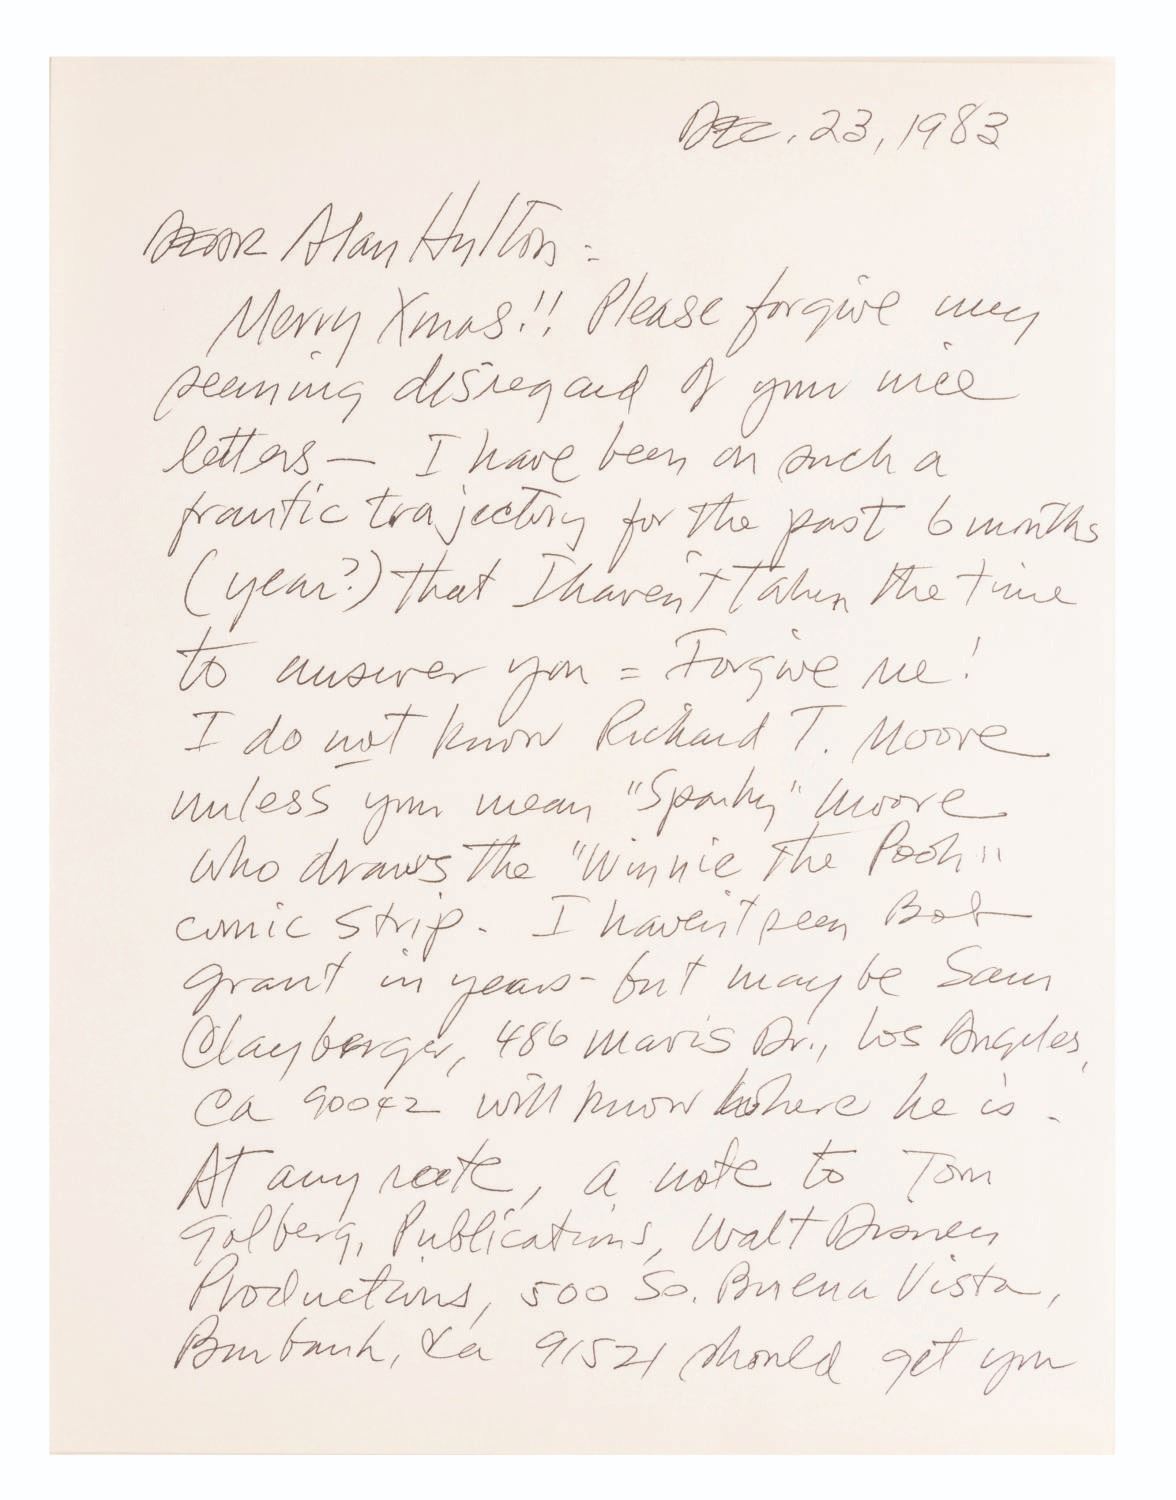 Dec. 23, 1983
Dear Alan Hylton:
Merry Xmas!! Please forgive my
seeming disregard of your nice
letters — I have been on such a
frantic trajectory for the past 6 months
(year?) that I haven't taken the time
to answer you = Forgive me!
I do not know Richard T. Moore
unless you mean "Sparky" Moore
who draws the "Winnie the Pooh"
comic strip. I haven't seen Bob
Grant in years - but maybe Sam
Clayberger, 486 Mavis Dr., Los Angeles,
Ca 90042 will know where he is.
At any rate, a note to Tom
Golberg, Publications, Walt Disney
Productions, 500 So. Buena Vista,
Burbank, Ca 91521 should get you